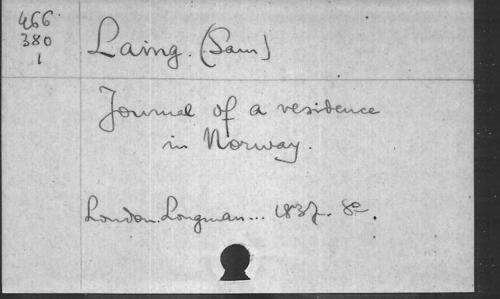 466
380
1
Laing. (Sam)
Journal of a residence
in Norway.
London. Longman... 1837. 8º.